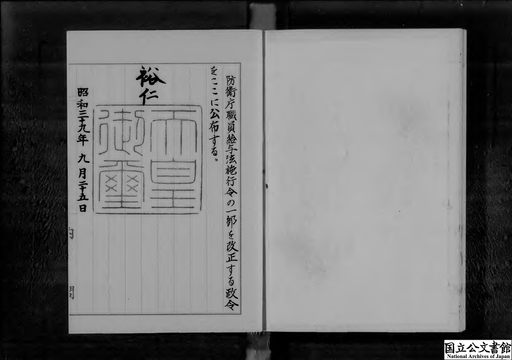 防衛庁職員給与法施行令の一部を改正する政令
をここに公布する。
裕仁
天皇
御璽
昭和三十九年九月二十五日
国立公文書館
National Archives of Japan